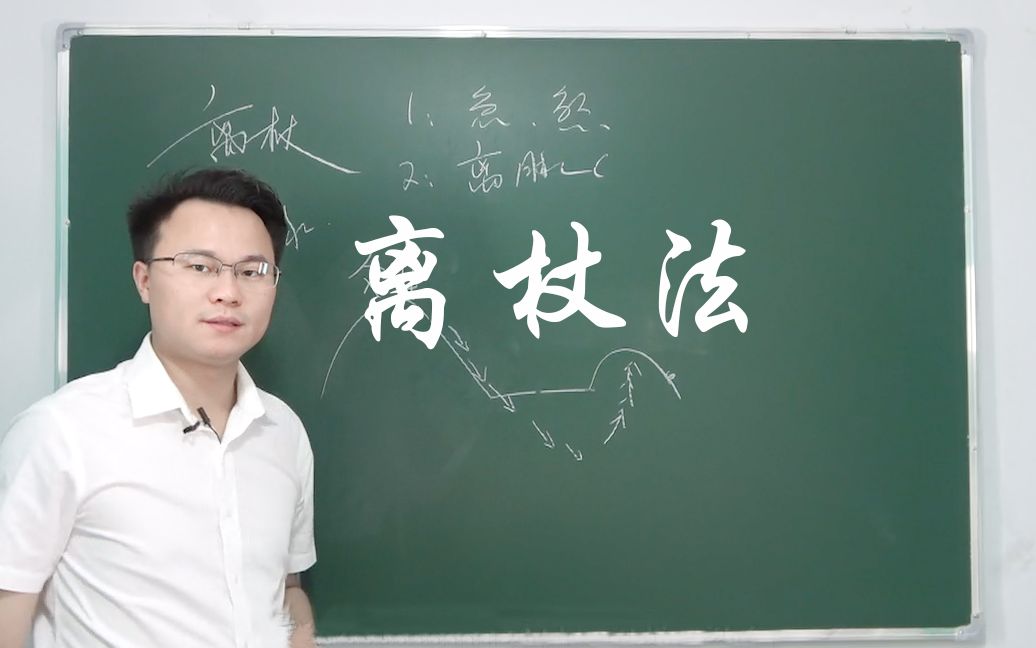 离杖
1: 急、煞、
2: 离脉
离杖法